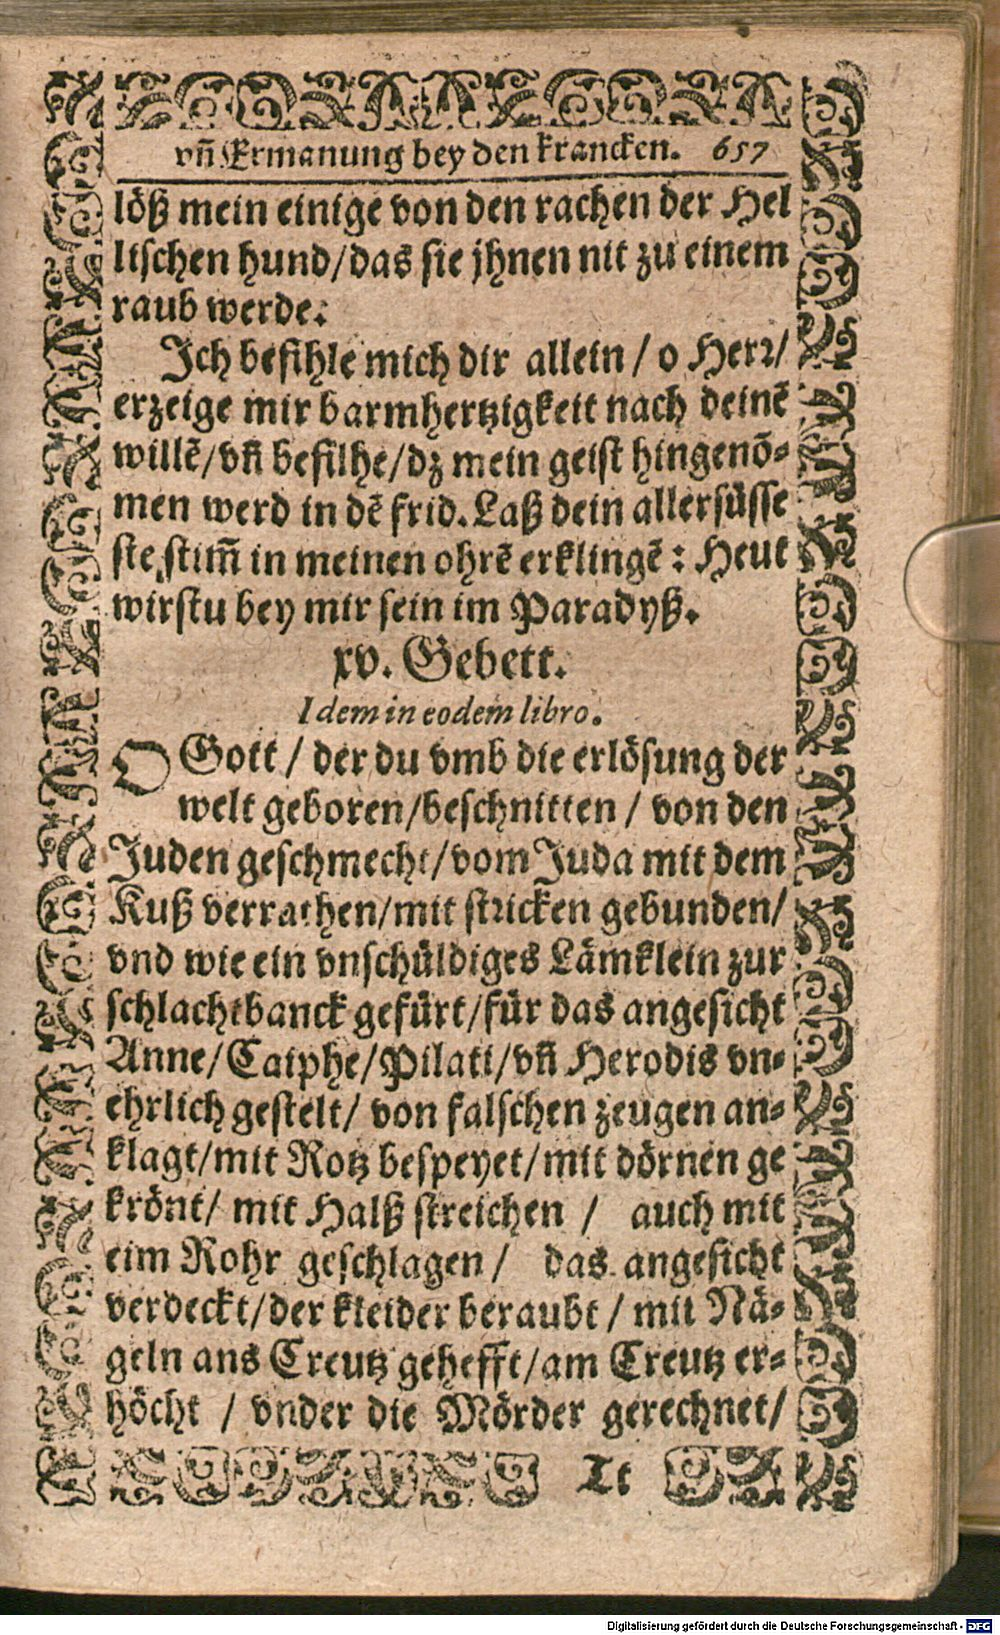 vñ Ermanung bey den krancken. 657
löß mein einige von den rachen der Hel
lischen hund/das sie jhnen nit zu einem
raub werde:
Ich befihle mich dir allein / o Herr/
erzeige mir barmhertzigkeit nach deinē
willē/vñ befilhe/dz mein geist hingenō-
men werd in dē frid. Laß dein allersüsse
ste stim̃ in meinen ohrē erklingē: Heut
wirstu bey mir sein im Paradyß.
xv. Gebett.
Idem in eodem libro.
O Gott / der du vmb die erlösung der
welt geboren/beschnitten / von den
Juden geschmecht/vom Juda mit dem
Kuß verrathen/mit stricken gebunden/
vnd wie ein vnschüldiges Lämklein zur
schlachtbanck gefürt/für das angesicht
Anne/Caiphe/Pilati/vñ Herodis vn-
ehrlich gestelt/ von falschen zeugen an-
klagt/mit Rotz bespeyet/mit dörnen ge
krönt/ mit Halß streichen / auch mit
eim Rohr geschlagen / das angesicht
verdeckt/der kleider beraubt / mit Nä-
geln ans Creutz gehefft/am Creutz er-
höcht / vnder die Mörder gerechnet/
Tt
Digitalisierung gefördert durch die Deutsche Forschungsgemeinschaft - DFG